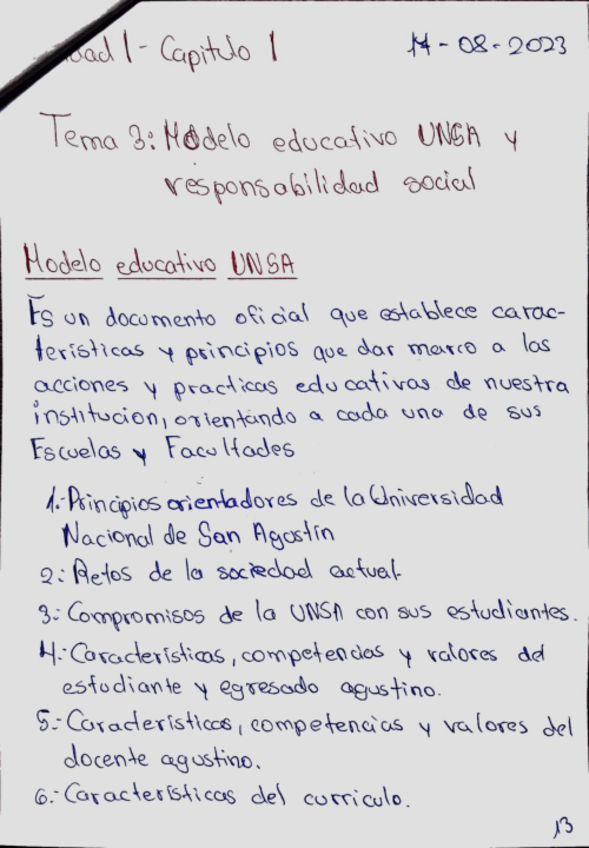 dad 1 - Capitulo 1
14 - 08 - 2023
Tema 3: Modelo educativo UNSA y
responsabilidad social
Modelo educativo UNSA
Es un documento oficial que establece carac-
terísticas y principios que dar marco a las
acciones y practicas educativas de nuestra
institucion, orientando a cada una de sus
Escuelas y Facultades
1.- Principios orientadores de la Universidad
Nacional de San Agostín
2.- Retos de la sociedad actual.
3.- Compromisos de la UNSA con sus estudiantes.
4.- Características, competencias y valores del
estudiante y egresado agustino.
5.- Características, competencias y valores del
docente agustino.
6.- Características del curriculo.
13